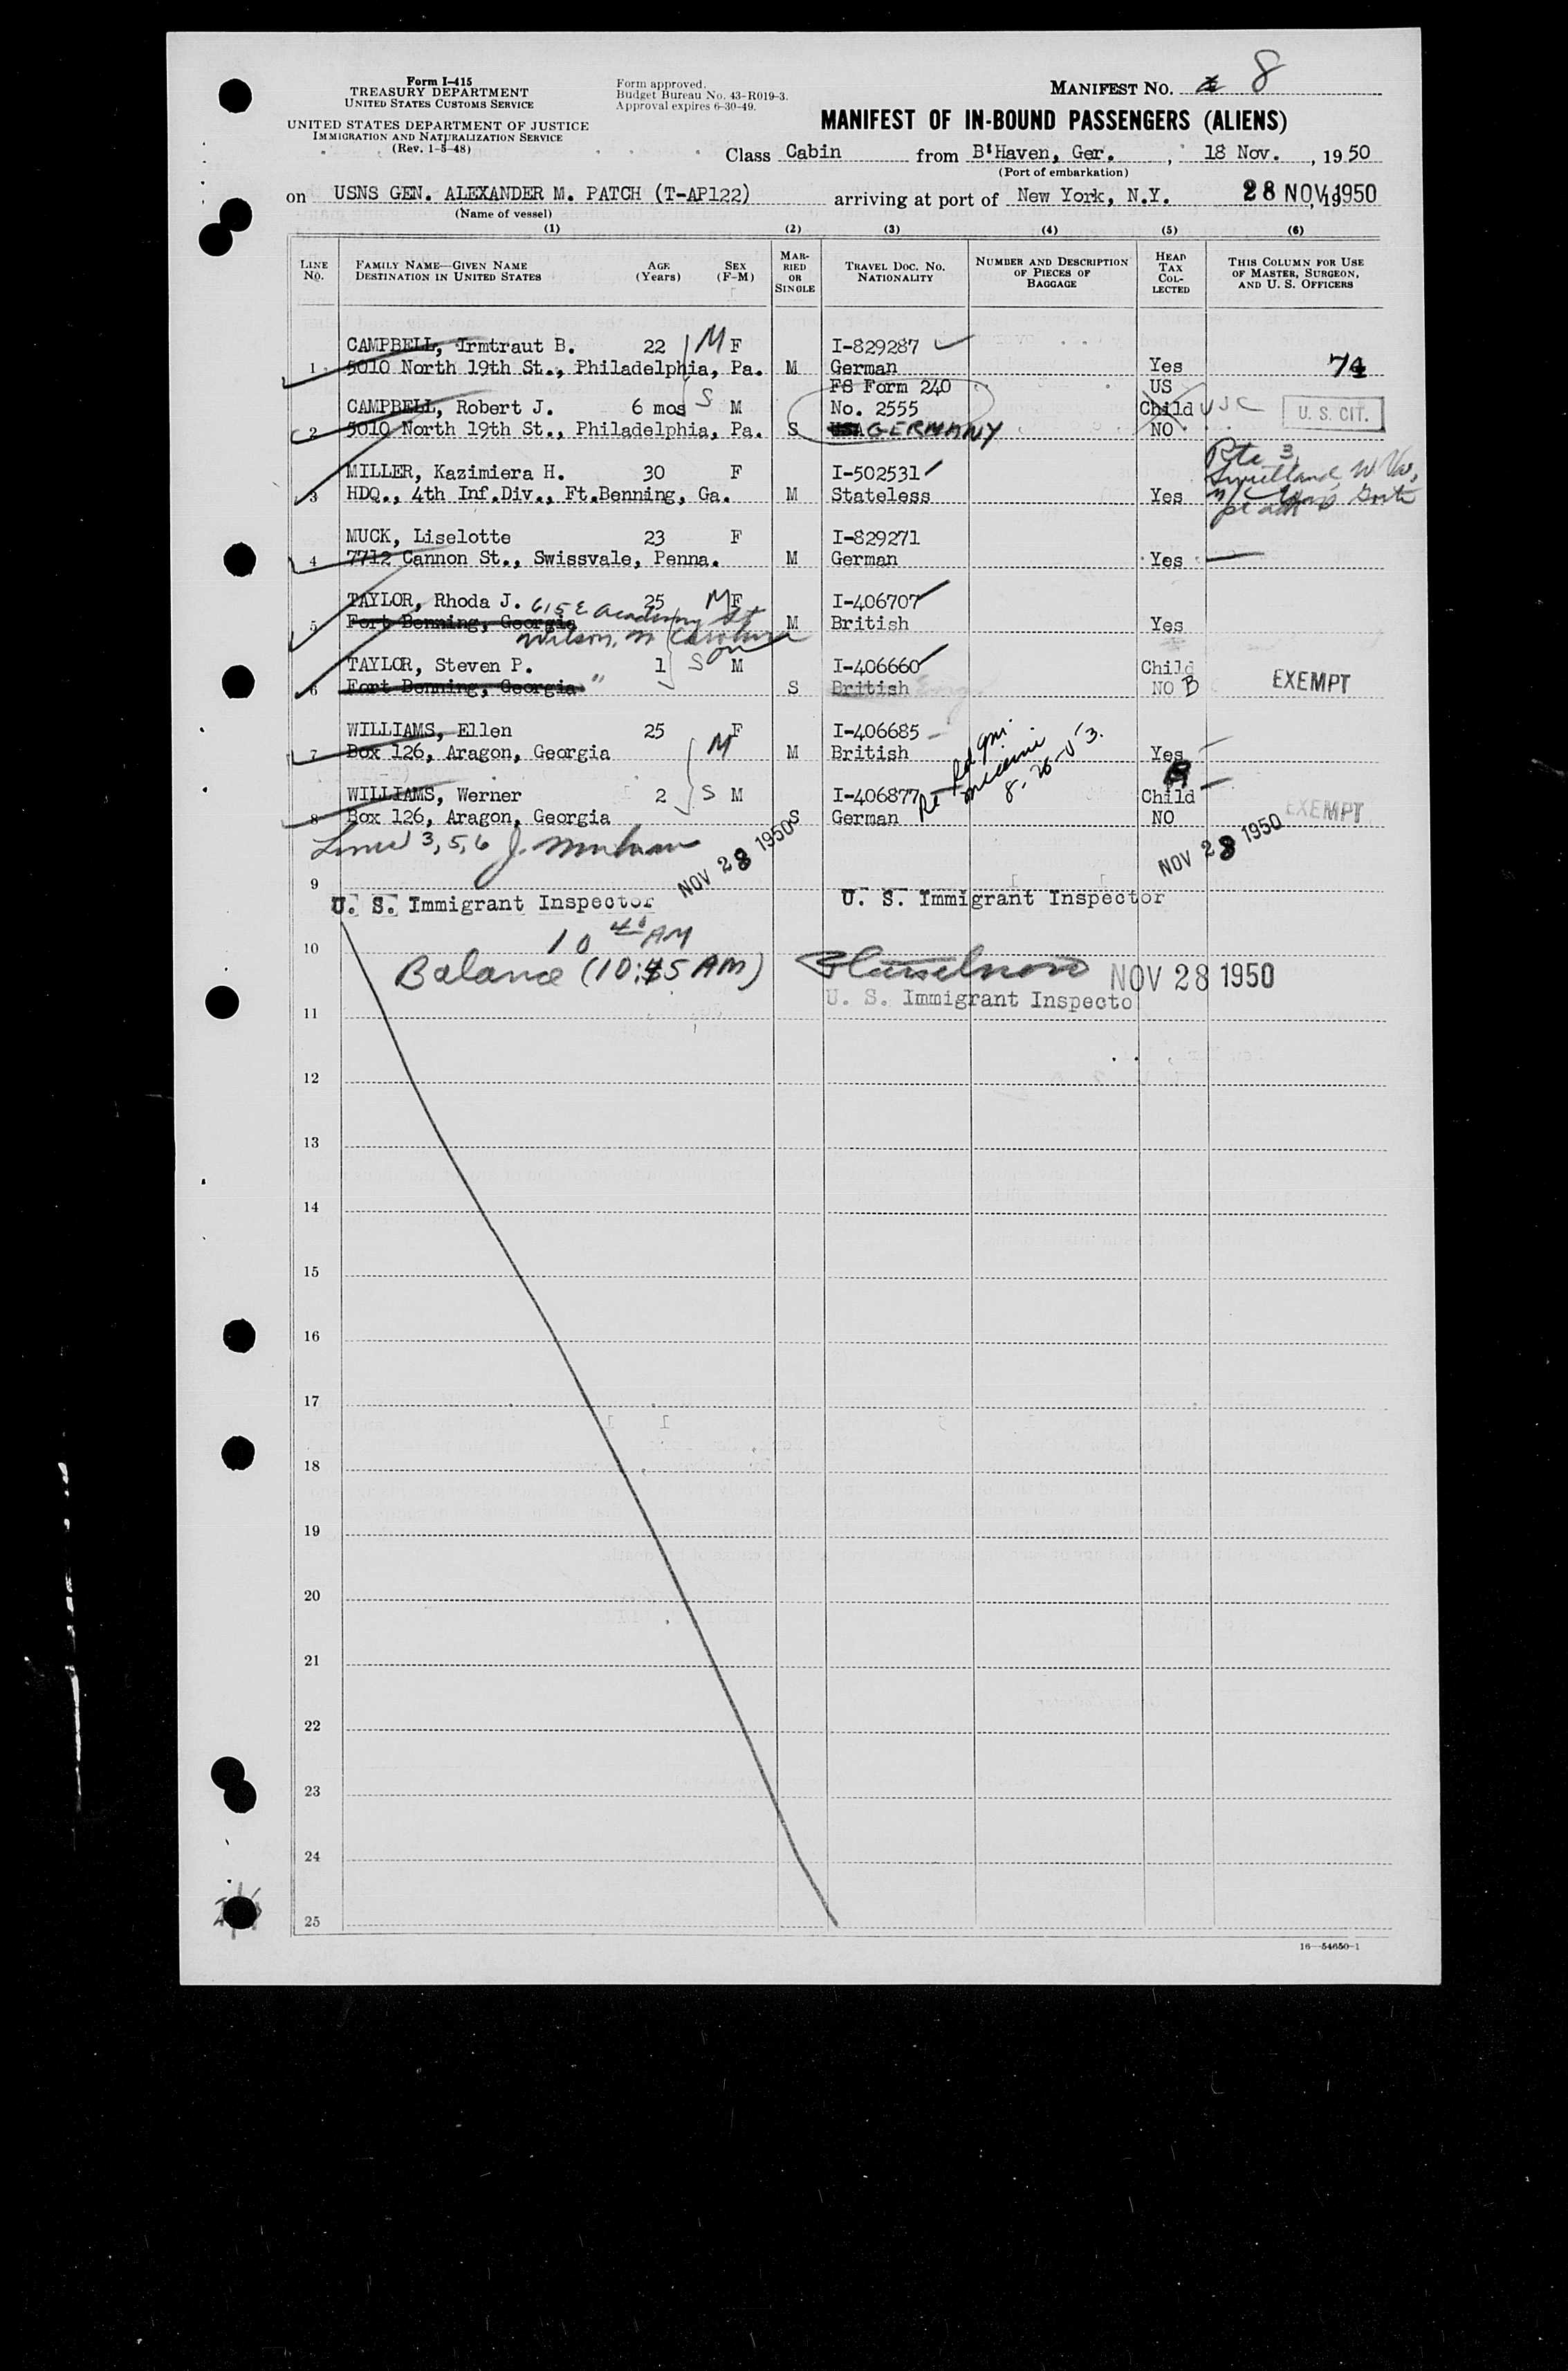 Form I-415
TREASURY DEPARTMENT
UNITED STATES CUSTOMS SERVICE
UNITED STATES DEPARTMENT OF JUSTICE
IMMIGRATION AND NATURALIZATION SERVICE
(Rev. 1-5-48)
Form approved.
Budget Bureau No. 43-R019-3.
Approval expires 6-30-49.
MANIFEST NO. 8
MANIFEST OF IN-BOUND PASSENGERS (ALIENS)
Class Cabin from B'Haven, Ger. , 18 Nov. , 19 50
(Port of embarkation)
on USNS GEN. ALEXANDER M. PATCH (T-AP122) arriving at port of New York, N.Y. 28 NOV 1950, 19
(Name of vessel)
(1) (2) (3) (4) (5) (6)
LINE NO. FAMILY NAME—GIVEN NAME DESTINATION IN UNITED STATES AGE (Years) SEX (F-M) MARRIED OR SINGLE TRAVEL DOC. NO. NATIONALITY NUMBER AND DESCRIPTION OF PIECES OF BAGGAGE HEAD TAX COLLECTED THIS COLUMN FOR USE OF MASTER, SURGEON, AND U. S. OFFICERS
CAMPBELL, Irmtraut B. 22 M F I-829287
1 5010 North 19th St., Philadelphia, Pa. M German Yes 74
FS Form 240 US
CAMPBELL, Robert J. 6 mos S M No. 2555 Child USC U. S. CIT.
2 5010 North 19th St., Philadelphia, Pa. S USA GERMANY NO
MILLER, Kazimiera H. 30 F I-502531 Rte 3,
3 HDQ., 4th Inf.Div., Ft.Benning, Ga. M Stateless Yes
MUCK, Liselotte 23 F I-829271
4 7712 Cannon St., Swissvale, Penna. M German Yes
TAYLOR, Rhoda J. 615 E Academy St 25 M F I-406707
5 Fort Benning, Georgia Wilson, N Carolina M British Yes
TAYLOR, Steven P. 1 Son M I-406660 Child
6 Fort Benning, Georgia " S British NO B EXEMPT
WILLIAMS, Ellen 25 M F I-406685
7 Box 126, Aragon, Georgia M British Yes
WILLIAMS, Werner 2 S M I-406877 Child
8 Box 126, Aragon, Georgia S German NO EXEMPT
Lines 3, 5, 6 NOV 28 1950 NOV 28 1950
9
U. S. Immigrant Inspector U. S. Immigrant Inspector
10 40 AM
10
Balance (10:45 AM) NOV 28 1950
U. S. Immigrant Inspecto
11
12
13
14
15
16
17
18
19
20
21
22
23
24
25
16—54650-1